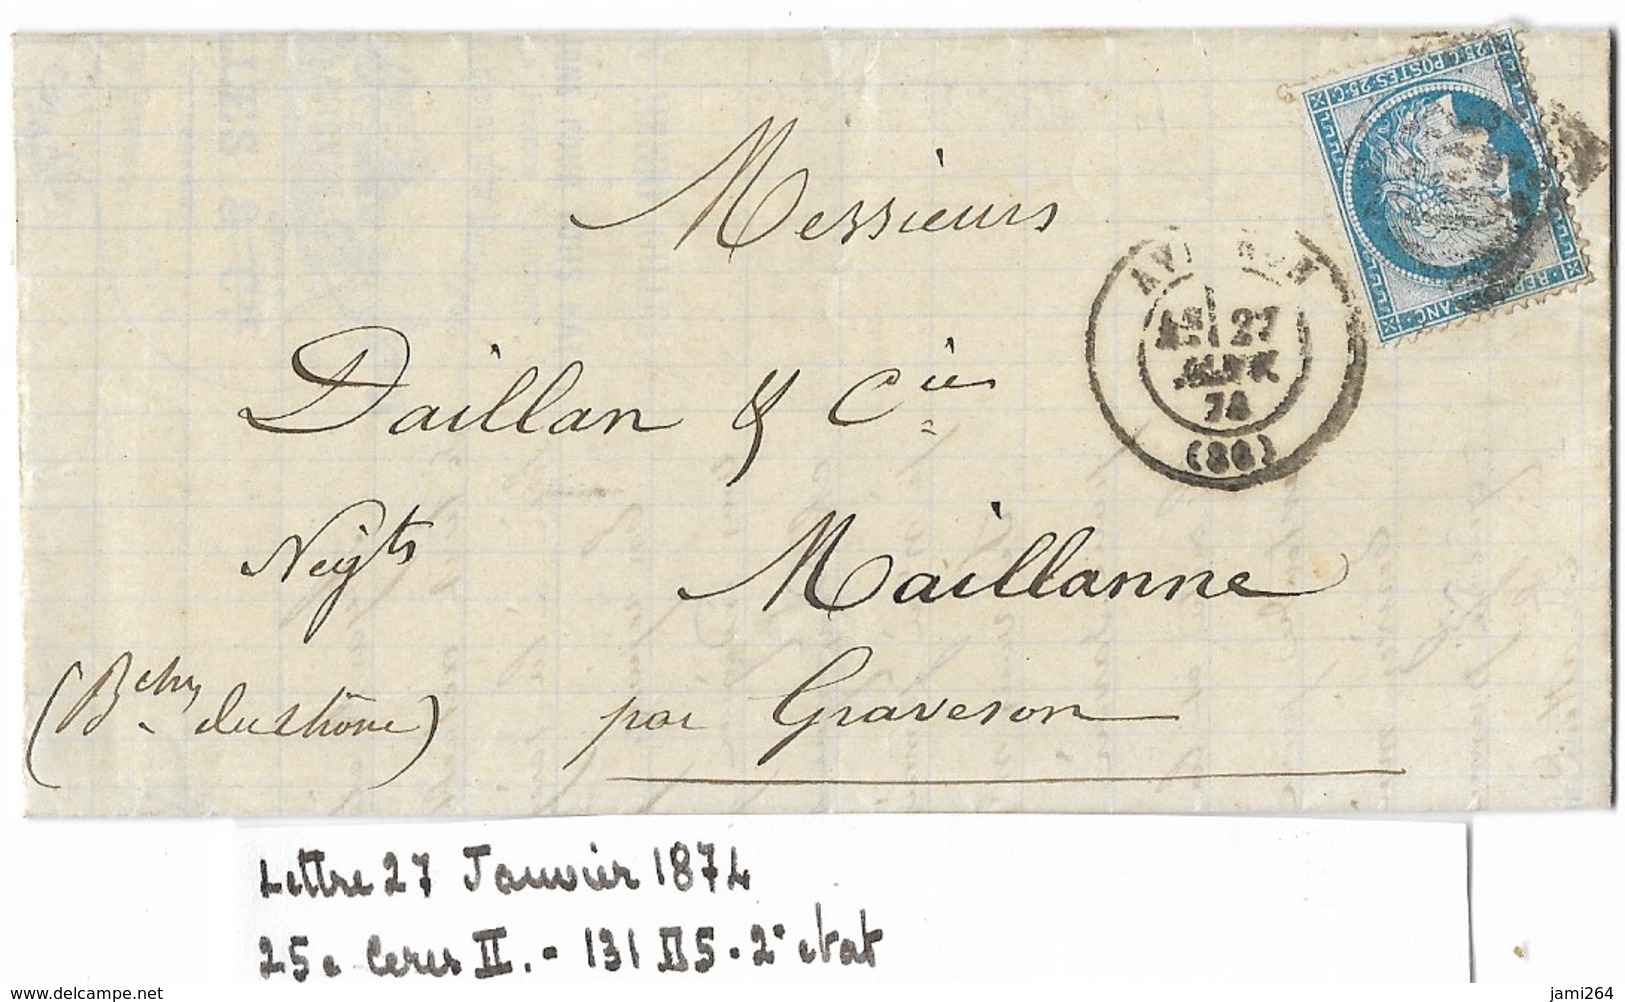 25 C. POSTES 25 C.
REPUB. FRANC.
Messieurs
AVIGNON
27
JANV.
74
(86)
Daillan & Cie
Negts Maillanne
(Bches du Rhône) par Graveson
Lettre 27 Janvier 1874
25c Ceres II. - 131 II S - 2e état
www.delcampe.net
jami264